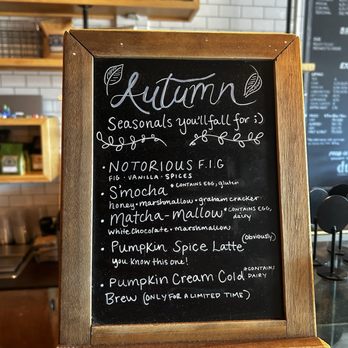 Autumn
Seasonals you'll fall for ;)
• NOTORIOUS F.I.G
FIG • VANILLA • SPICES
• S'mocha *CONTAINS EGG, gluten
honey • marshmallow • graham cracker
• Matcha-mallow *CONTAINS EGG, dairy
White Chocolate • Marshmallow
• Pumpkin Spice Latte (obviously)
you know this one!
• Pumpkin Cream Cold *CONTAINS DAIRY
Brew (ONLY FOR A LIMITED TIME)